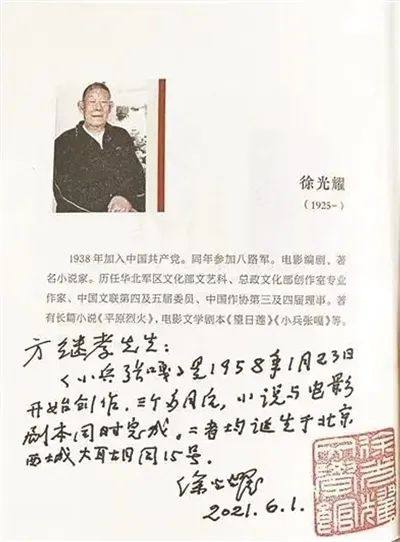 徐光耀
（1925-）
1938年加入中国共产党。同年参加八路军。电影编剧、著
名小说家。历任华北军区文化部文艺科、总政文化部创作室专业
作家、中国文联第四及五届委员、中国作协第三及四届理事。著
有长篇小说《平原烈火》，电影文学剧本《望日莲》《小兵张嘎》等。
方继孝先生：
《小兵张嘎》是1958年1月23日
开始创作，三个多月后，小说与电影
剧本同时完成。二者均诞生于北京
西城大耳胡同15号。
徐光耀
2021.6.1.